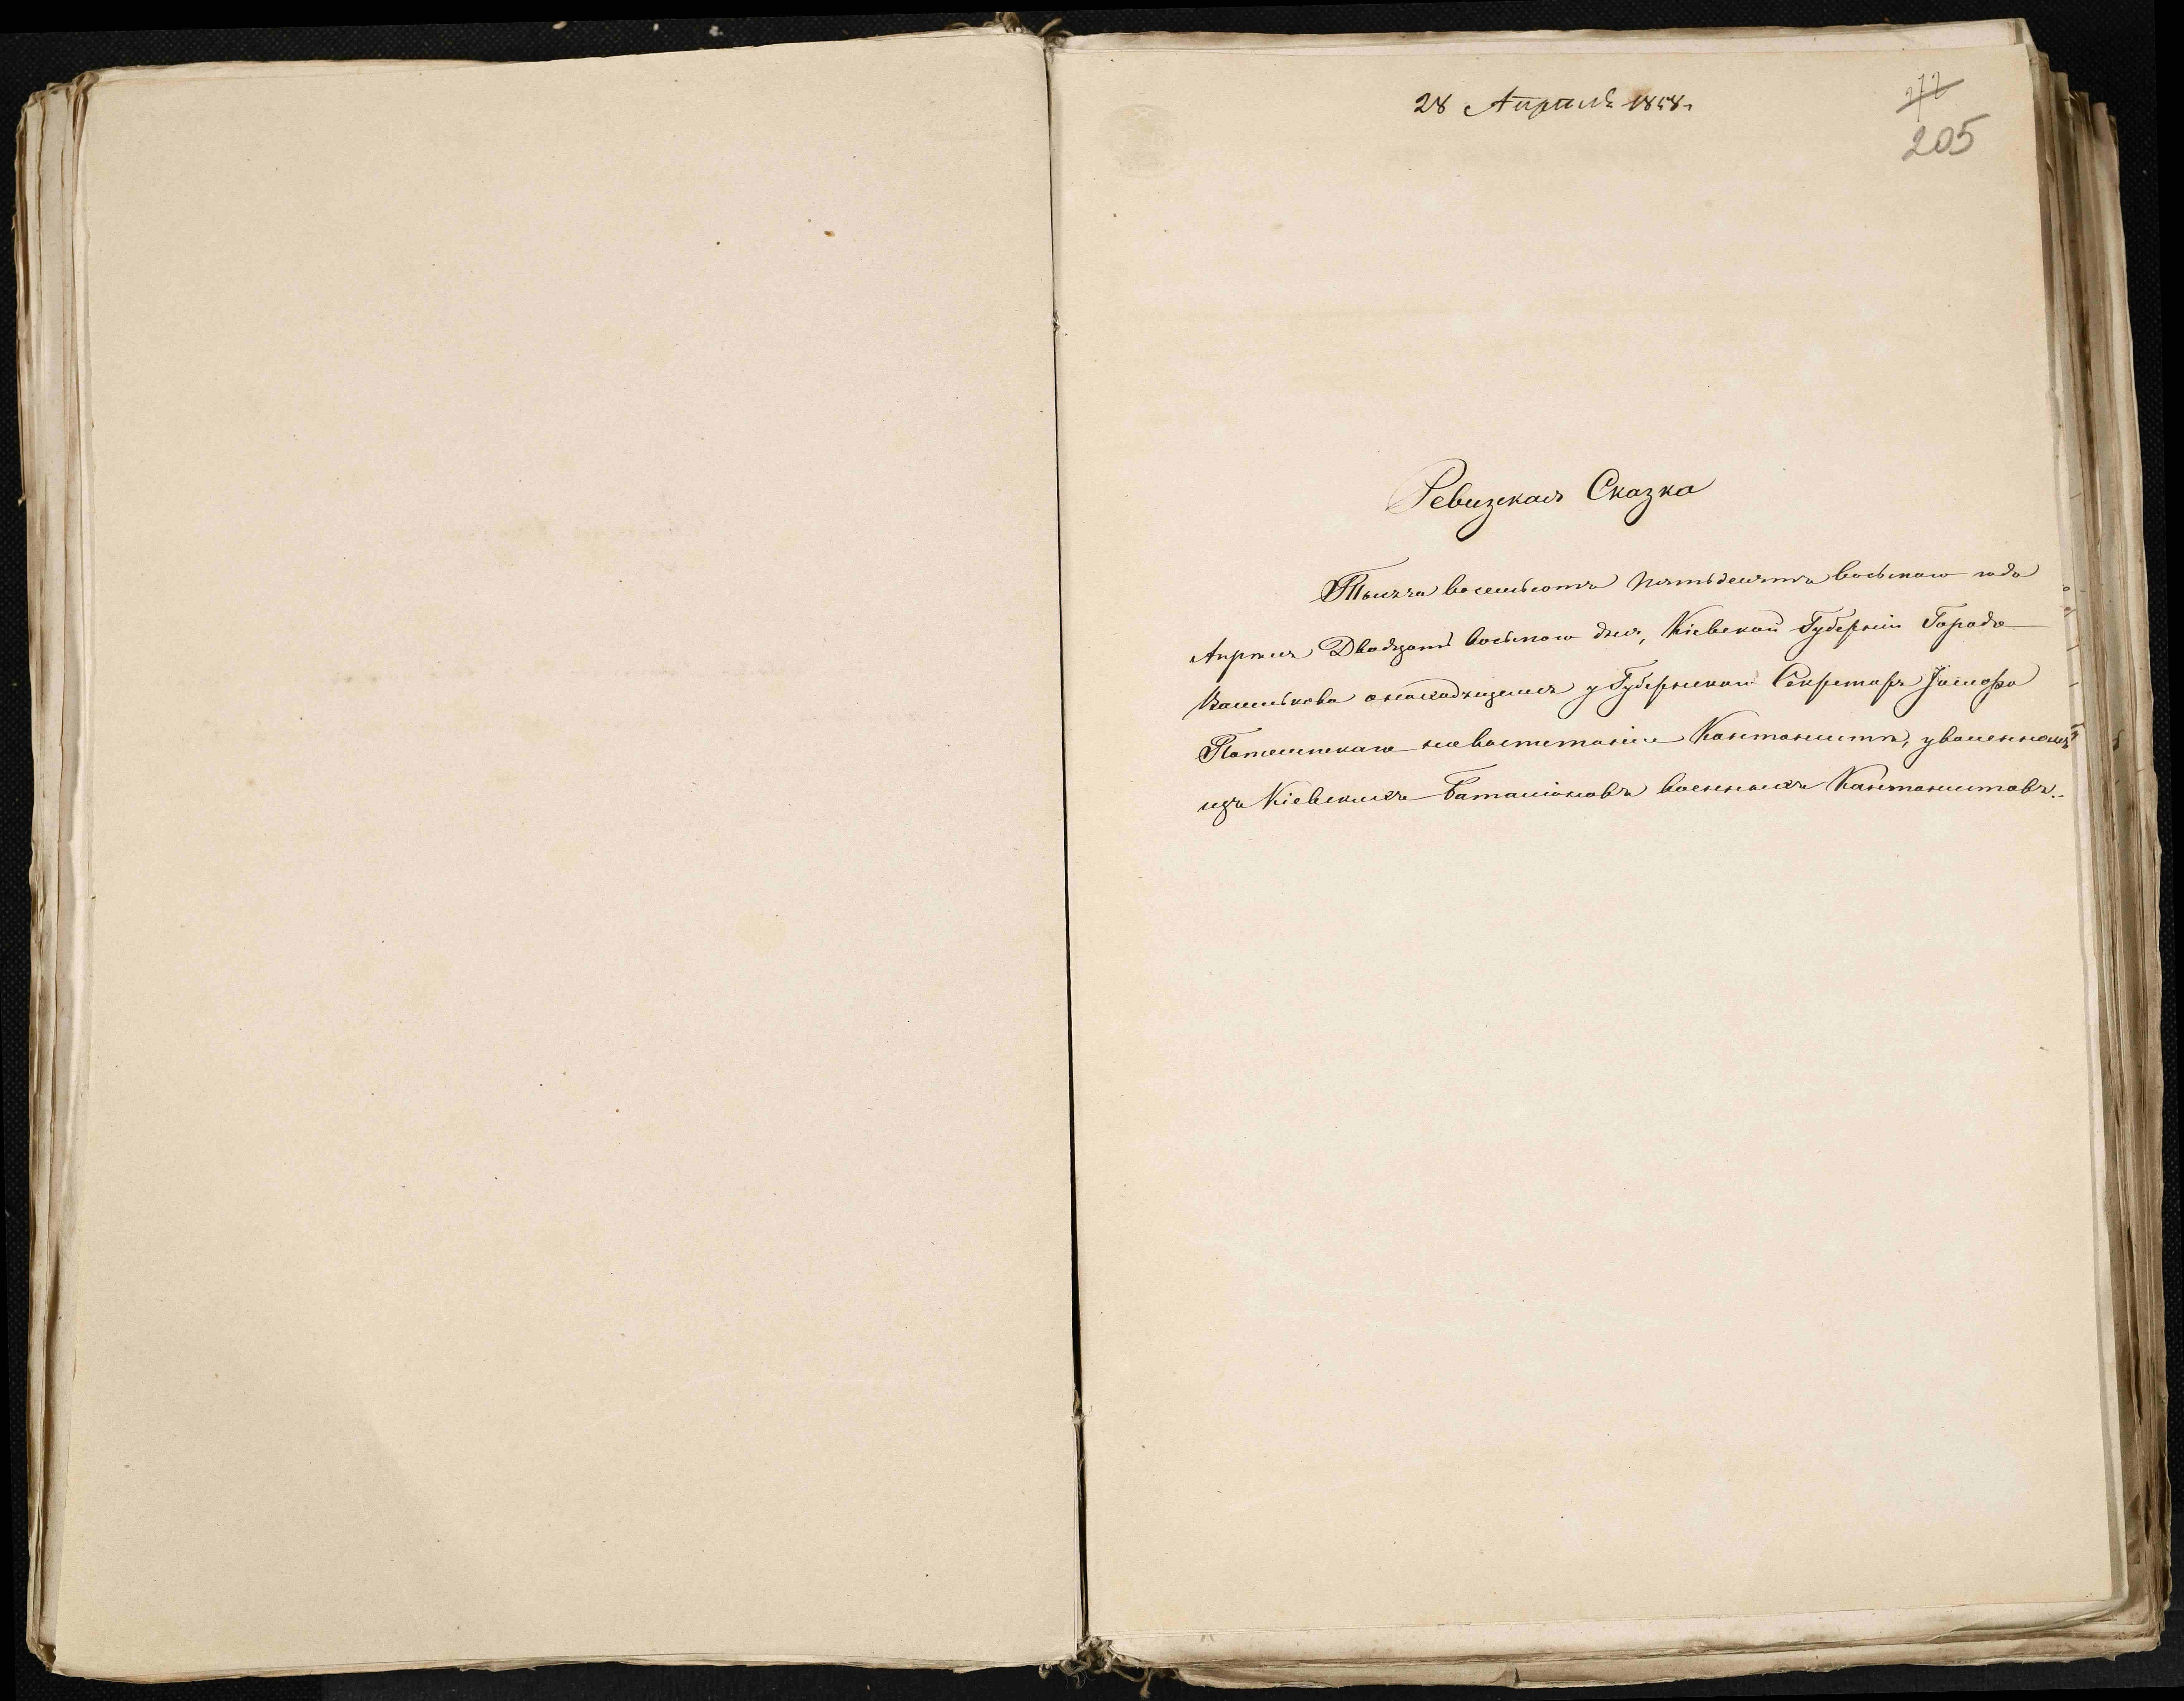 28 Апрѣля 1858.
72
205
Ревизская Сказка
Тысяча восемьсотъ пятьдесятъ восьмаго года
Апрѣля Двадцать восьмого дня, Кіевской Губерніи Города
Василькова о находящемся у Губернскаго Секретаря Іосифа
на воспитаніи Кантонистѣ, уволенномъ
изъ Кіевскихъ Баталіоновъ военныхъ Кантонистовъ.